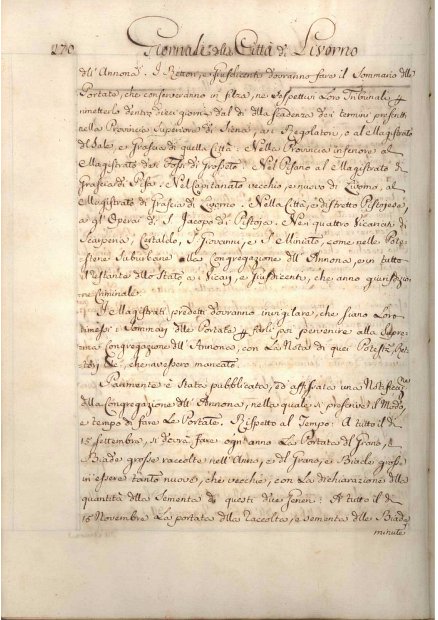 270 Giornale della Città di Livorno
dell' Annona. I Rettori, e Giusdicenti dovranno fare il Sommario delle
Portate, che conserveranno in filza, ne respettivi Loro Tribunali, 
rimetterlo dentro dieci giorni dal dì della scadenza dei termini prefissi
nella Provincia Superiore di Siena, ai Regolatori, o al Magistrato
del Sale, e Grascia di quella Città: Nella Provincia inferiore al
Magistrato dei Fossi di Grosseto: Nel Pisano al Magistrato di
Grascia di Pisa: Nel Capitanato vecchio, e nuovo di Livorno, al
Magistrato di Grascia di Livorno: Nella Città, e distretto Pistojese,
a gl' Opera di S. Jacopo di Pistoja: Nei quattro Vicariati di
Scarperia, Certaldo, S. Giovanni, e S. Miniato, come nelle Pote-
sterie Suburbane alla Congregazione dell' Annona, e in tutto
il restante dello Stato a i Vicarj, e Giusdicenti, che anno giurisdizio
ne criminale.
I Magistrati predetti dovranno invigilare, che siano Loro
rimessi i Sommarj delle Portate farli poi pervenire alla Supre-
ma Congregazione dell' Annona, con La Nota di quei Potestà, Ret-
tori &c., che avessero mancato.
Parimente è stata pubblicata, ed affissata una Notificazione
della Congregazione dell' Annona, nella quale si prescrive il Modo,
e tempo di fare Le Portate. Rispetto al Tempo: A tutto il dì
15 Settembre, si dovrà fare ogn' anno La Portata del Grano, e
Biade grosse raccolte nell' Anno, e del Grano, e Biade grosse
in essere tanto nuove, che vecchie, con La dichiarazione della
quantità della Sementa di questi due Generi: A tutto il dì
15 Novembre La portata della Raccolta, e sementa delle Biade
minute